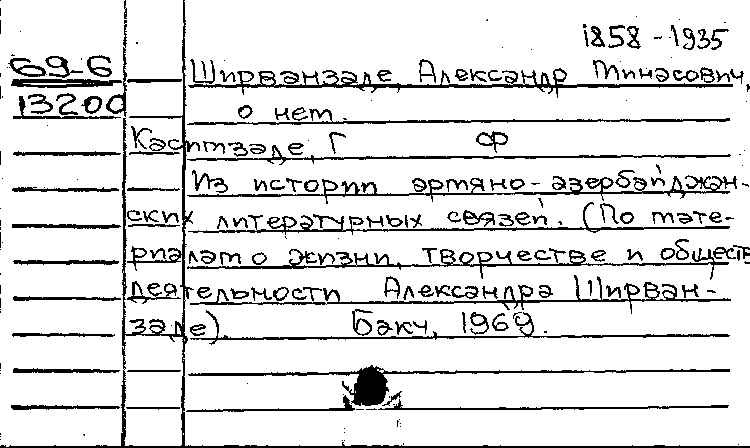 1858-1935
69-6 Ширванзаде, Александр Минасович,
13200 о нем.
Касимзаде, Г ф
Из истории армяно-азербайджан-
ских литературных связей. (По мате-
риалам о жизни, творчестве и обществ
деятельности Александра Ширван-
заде). Баку, 1969.